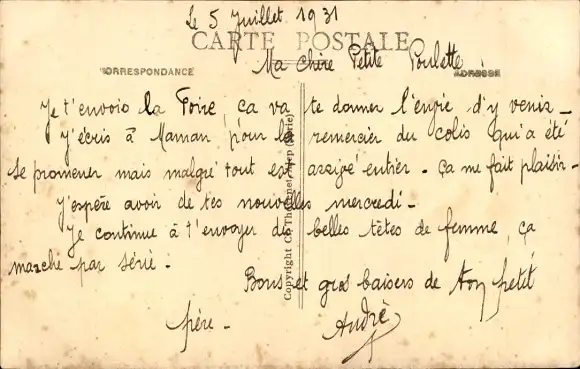 Le 5 Juillet 1931
CARTE POSTALE
Ma Chère Petite Poulette
CORRESPONDANCE
ADRESSE
Je t'envoie la Foire, ça va te donner l'envie d'y venir -
J'écris à Maman pour la remercier du colis qui a été
se promener mais malgré tout est arrivé entier - Ça me fait plaisir -
J'espère avoir de tes nouvelles mercredi -
Je continue à t'envoyer de belles têtes de femme, ça
marche par série -
Bons et gros baisers de ton petit
frère -
André
Copyright Cl.